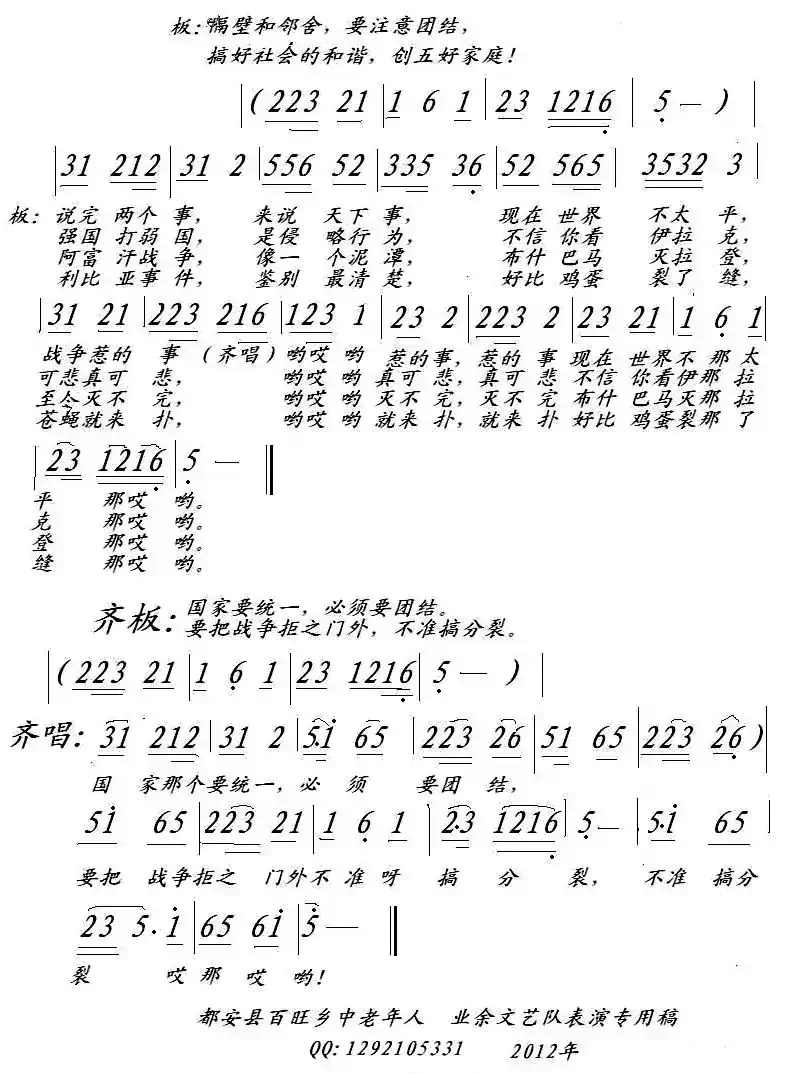 板：隔壁和邻舍，要注意团结，
搞好社会的和谐，创五好家庭！
(223 21 | 1 6 1 | 23 1216 | 5 — ) |
31 212 | 31 2 | 556 52 | 335 36 | 52 565 | 3532 3 |
板：说完 两个 事， 来说 天下 事， 现在 世界 不太 平，
强国 打弱 国， 是侵 略行 为， 不信 你看 伊拉 克，
阿富 汗战 争， 像一 个泥 潭， 布什 巴马 灭拉 登，
利比 亚事 件， 鉴别 最清 楚， 好比 鸡蛋 裂了 缝，
31 21 | 223 216 | 123 1 | 23 2 | 223 2 | 23 21 | 1 6 1
战争惹的 事 （齐唱）哟哎 哟 惹的事，惹的 事 现在 世界不 那 太
可悲真可 悲， 哟哎 哟 真可 悲，真可 悲 不信 你看伊那 拉
至今灭不 完， 哟哎 哟 灭不 完，灭不 完 布什 巴马灭那 拉
苍蝇就来 扑， 哟哎 哟 就来 扑，就来 扑 好比 鸡蛋裂那 了
23 1216 | 5 —
平 那哎 哟。
克 那哎 哟。
登 那哎 哟。
缝 那哎 哟。
齐板：国家要统一，必须要团结。
要把战争拒之门外，不准搞分裂。
(223 21 | 1 6 1 | 23 1216 | 5 — ) |
齐唱：31 212 | 31 2 | 5·1 65 | 223 26 | 51 65 | 223 26 )
国 家那个要统一，必 须 要团 结，
51 65 | 223 21 | 1 6 1 | 2·3 1216 | 5 — | 5·1 65
要把 战争拒之 门外不 准 呀 搞 分 裂， 不准 搞分
23 5· 1 | 65 61 | 5 —
裂 哎 那 哎 哟！
都安县百旺乡中老年人 业余文艺队表演专用稿
QQ: 1292105331 2012年